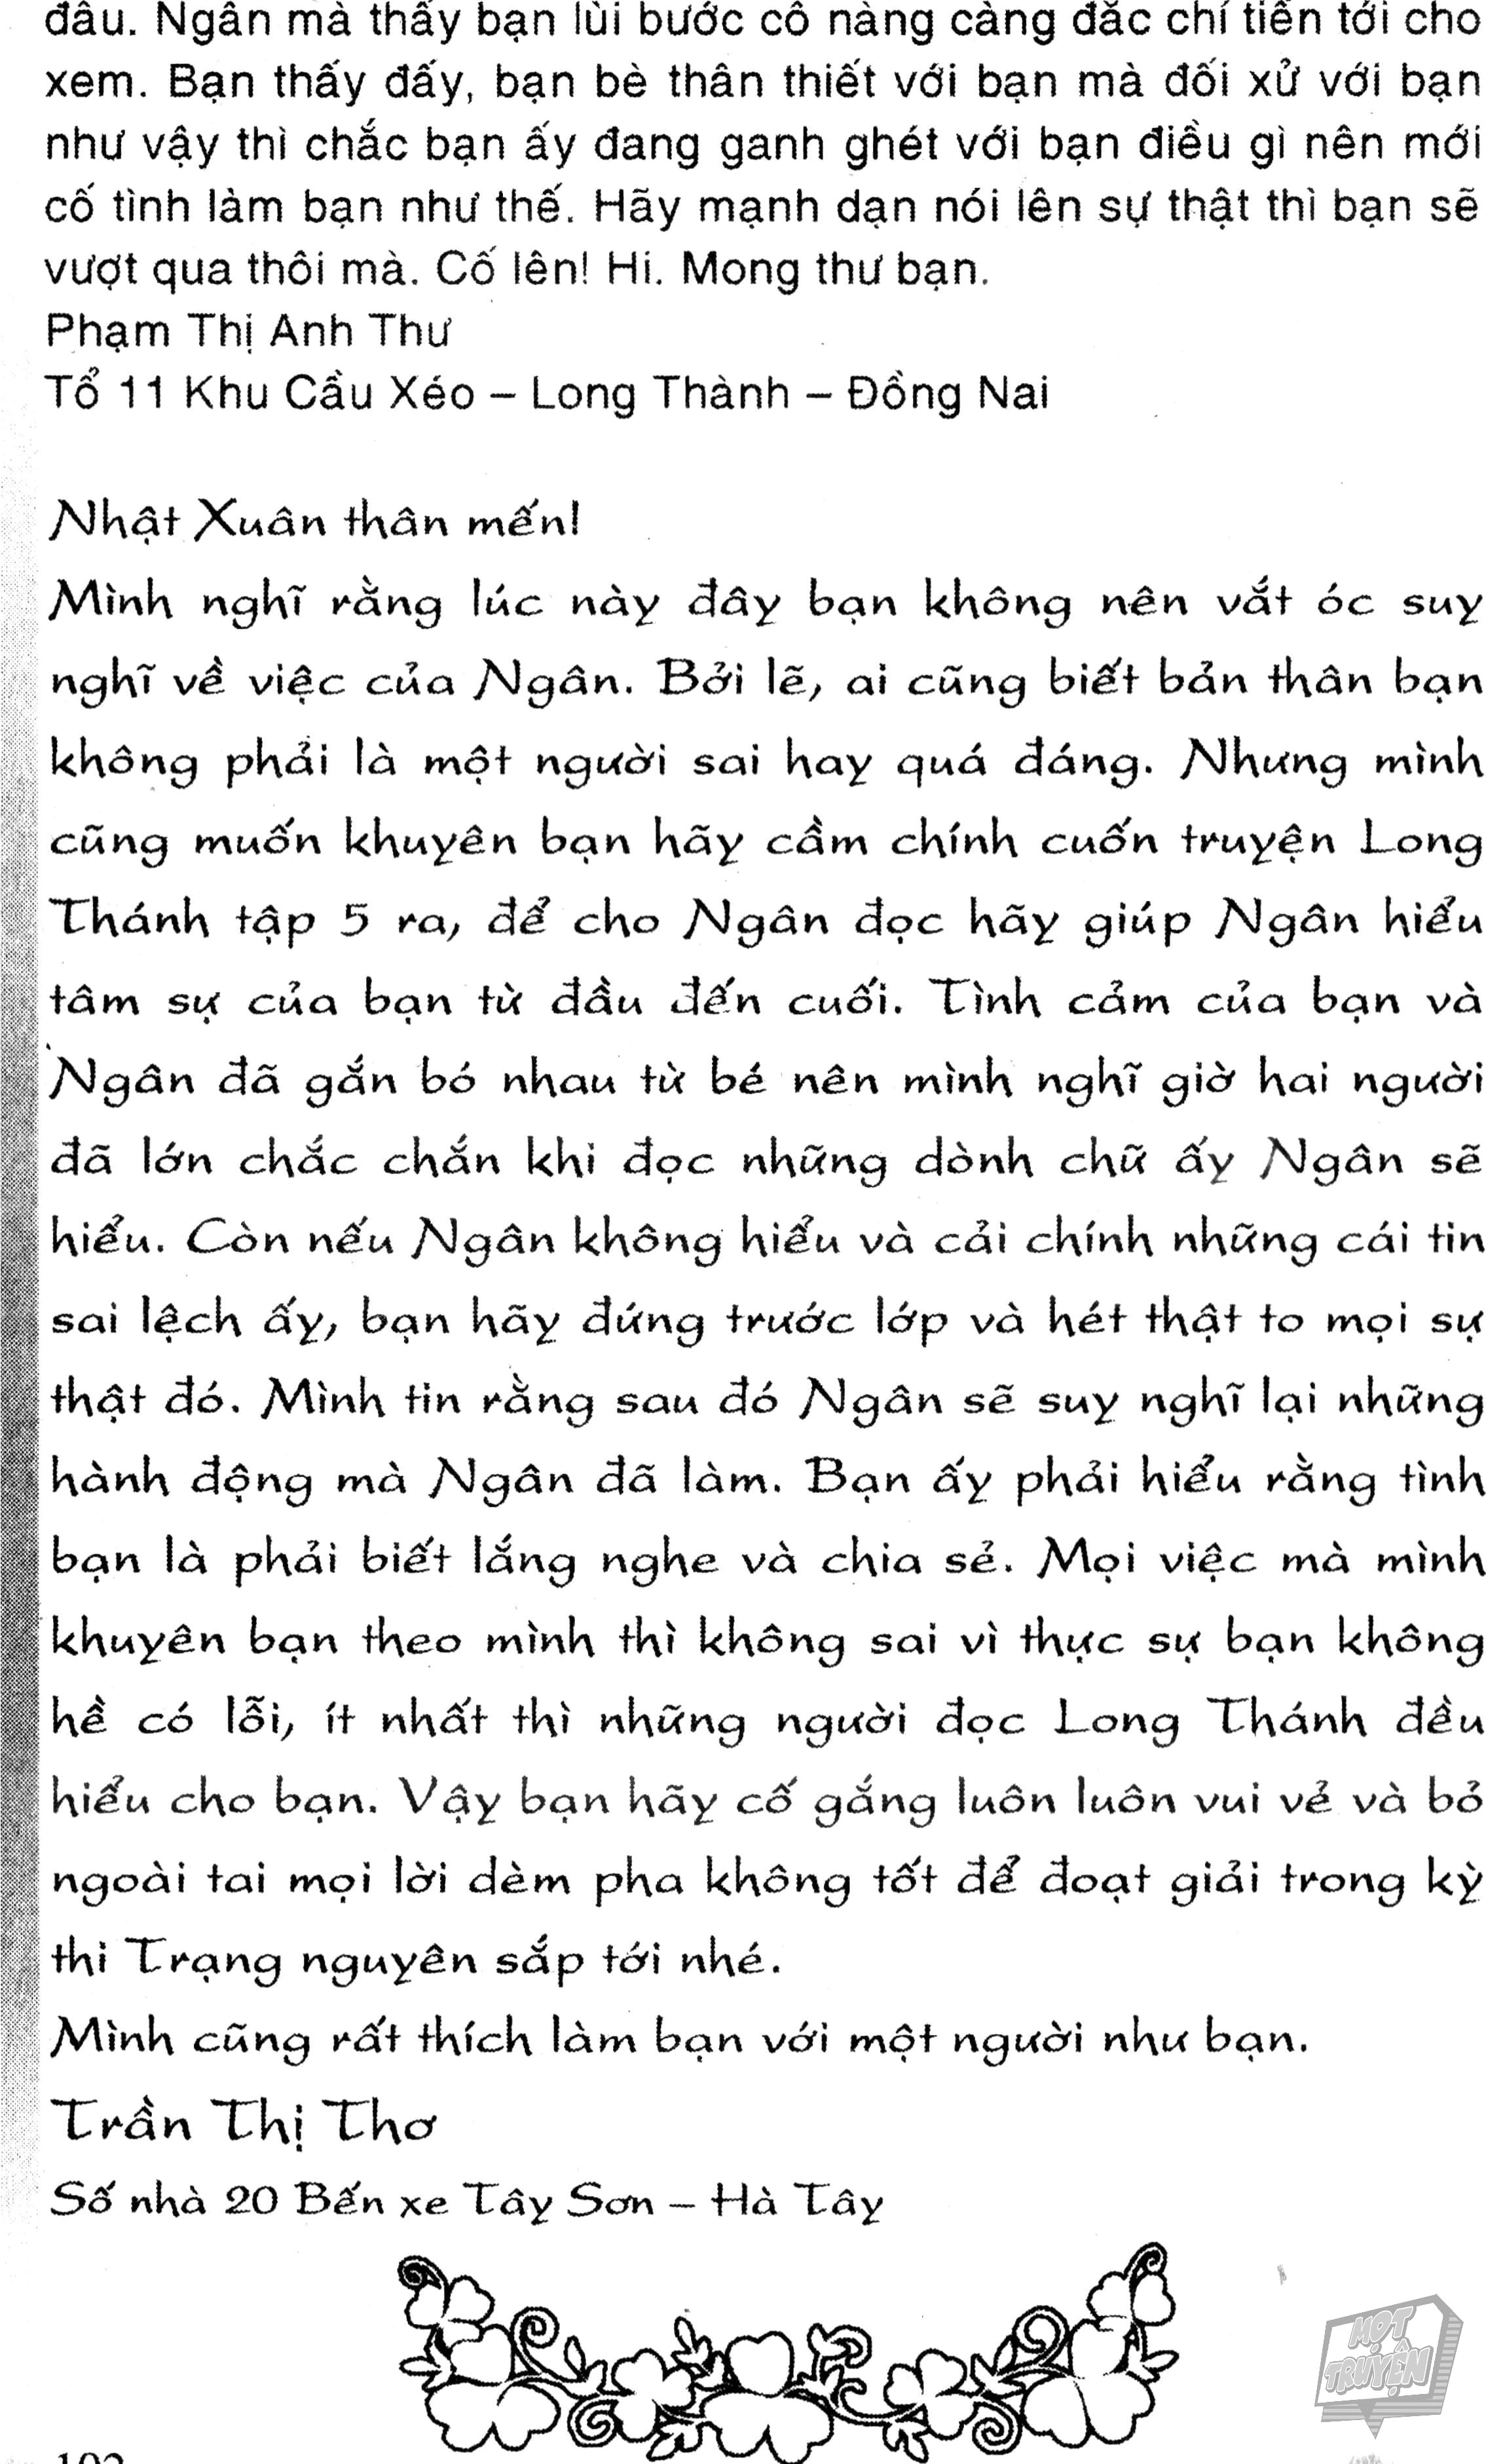 đâu. Ngân mà thấy bạn lùi bước cô nàng càng đắc chí tiến tới cho
xem. Bạn thấy đấy, bạn bè thân thiết với bạn mà đối xử với bạn
như vậy thì chắc bạn ấy đang ganh ghét với bạn điều gì nên mới
cố tình làm bạn như thế. Hãy mạnh dạn nói lên sự thật thì bạn sẽ
vượt qua thôi mà. Cố lên! Hi. Mong thư bạn.
Phạm Thị Anh Thư
Tổ 11 Khu Cầu Xéo – Long Thành – Đồng Nai
Nhật Xuân thân mến!
Mình nghĩ rằng lúc này đây bạn không nên vắt óc suy
nghĩ về việc của Ngân. Bởi lẽ, ai cũng biết bản thân bạn
không phải là một người sai hay quá đáng. Nhưng mình
cũng muốn khuyên bạn hãy cầm chính cuốn truyện Long
Thánh tập 5 ra, để cho Ngân đọc hãy giúp Ngân hiểu
tâm sự của bạn từ đầu đến cuối. Tình cảm của bạn và
Ngân đã gắn bó nhau từ bé nên mình nghĩ giờ hai người
đã lớn chắc chắn khi đọc những dònh chữ ấy Ngân sẽ
hiểu. Còn nếu Ngân không hiểu và cải chính những cái tin
sai lệch ấy, bạn hãy đứng trước lớp và hét thật to mọi sự
thật đó. Mình tin rằng sau đó Ngân sẽ suy nghĩ lại những
hành động mà Ngân đã làm. Bạn ấy phải hiểu rằng tình
bạn là phải biết lắng nghe và chia sẻ. Mọi việc mà mình
khuyên bạn theo mình thì không sai vì thực sự bạn không
hề có lỗi, ít nhất thì những người đọc Long Thánh đều
hiểu cho bạn. Vậy bạn hãy cố gắng luôn luôn vui vẻ và bỏ
ngoài tai mọi lời dèm pha không tốt để đoạt giải trong kỳ
thi Trạng nguyên sắp tới nhé.
Mình cũng rất thích làm bạn với một người như bạn.
Trần Thị Thơ
Số nhà 20 Bến xe Tây Sơn – Hà Tây
MỌT
TRUYỆN